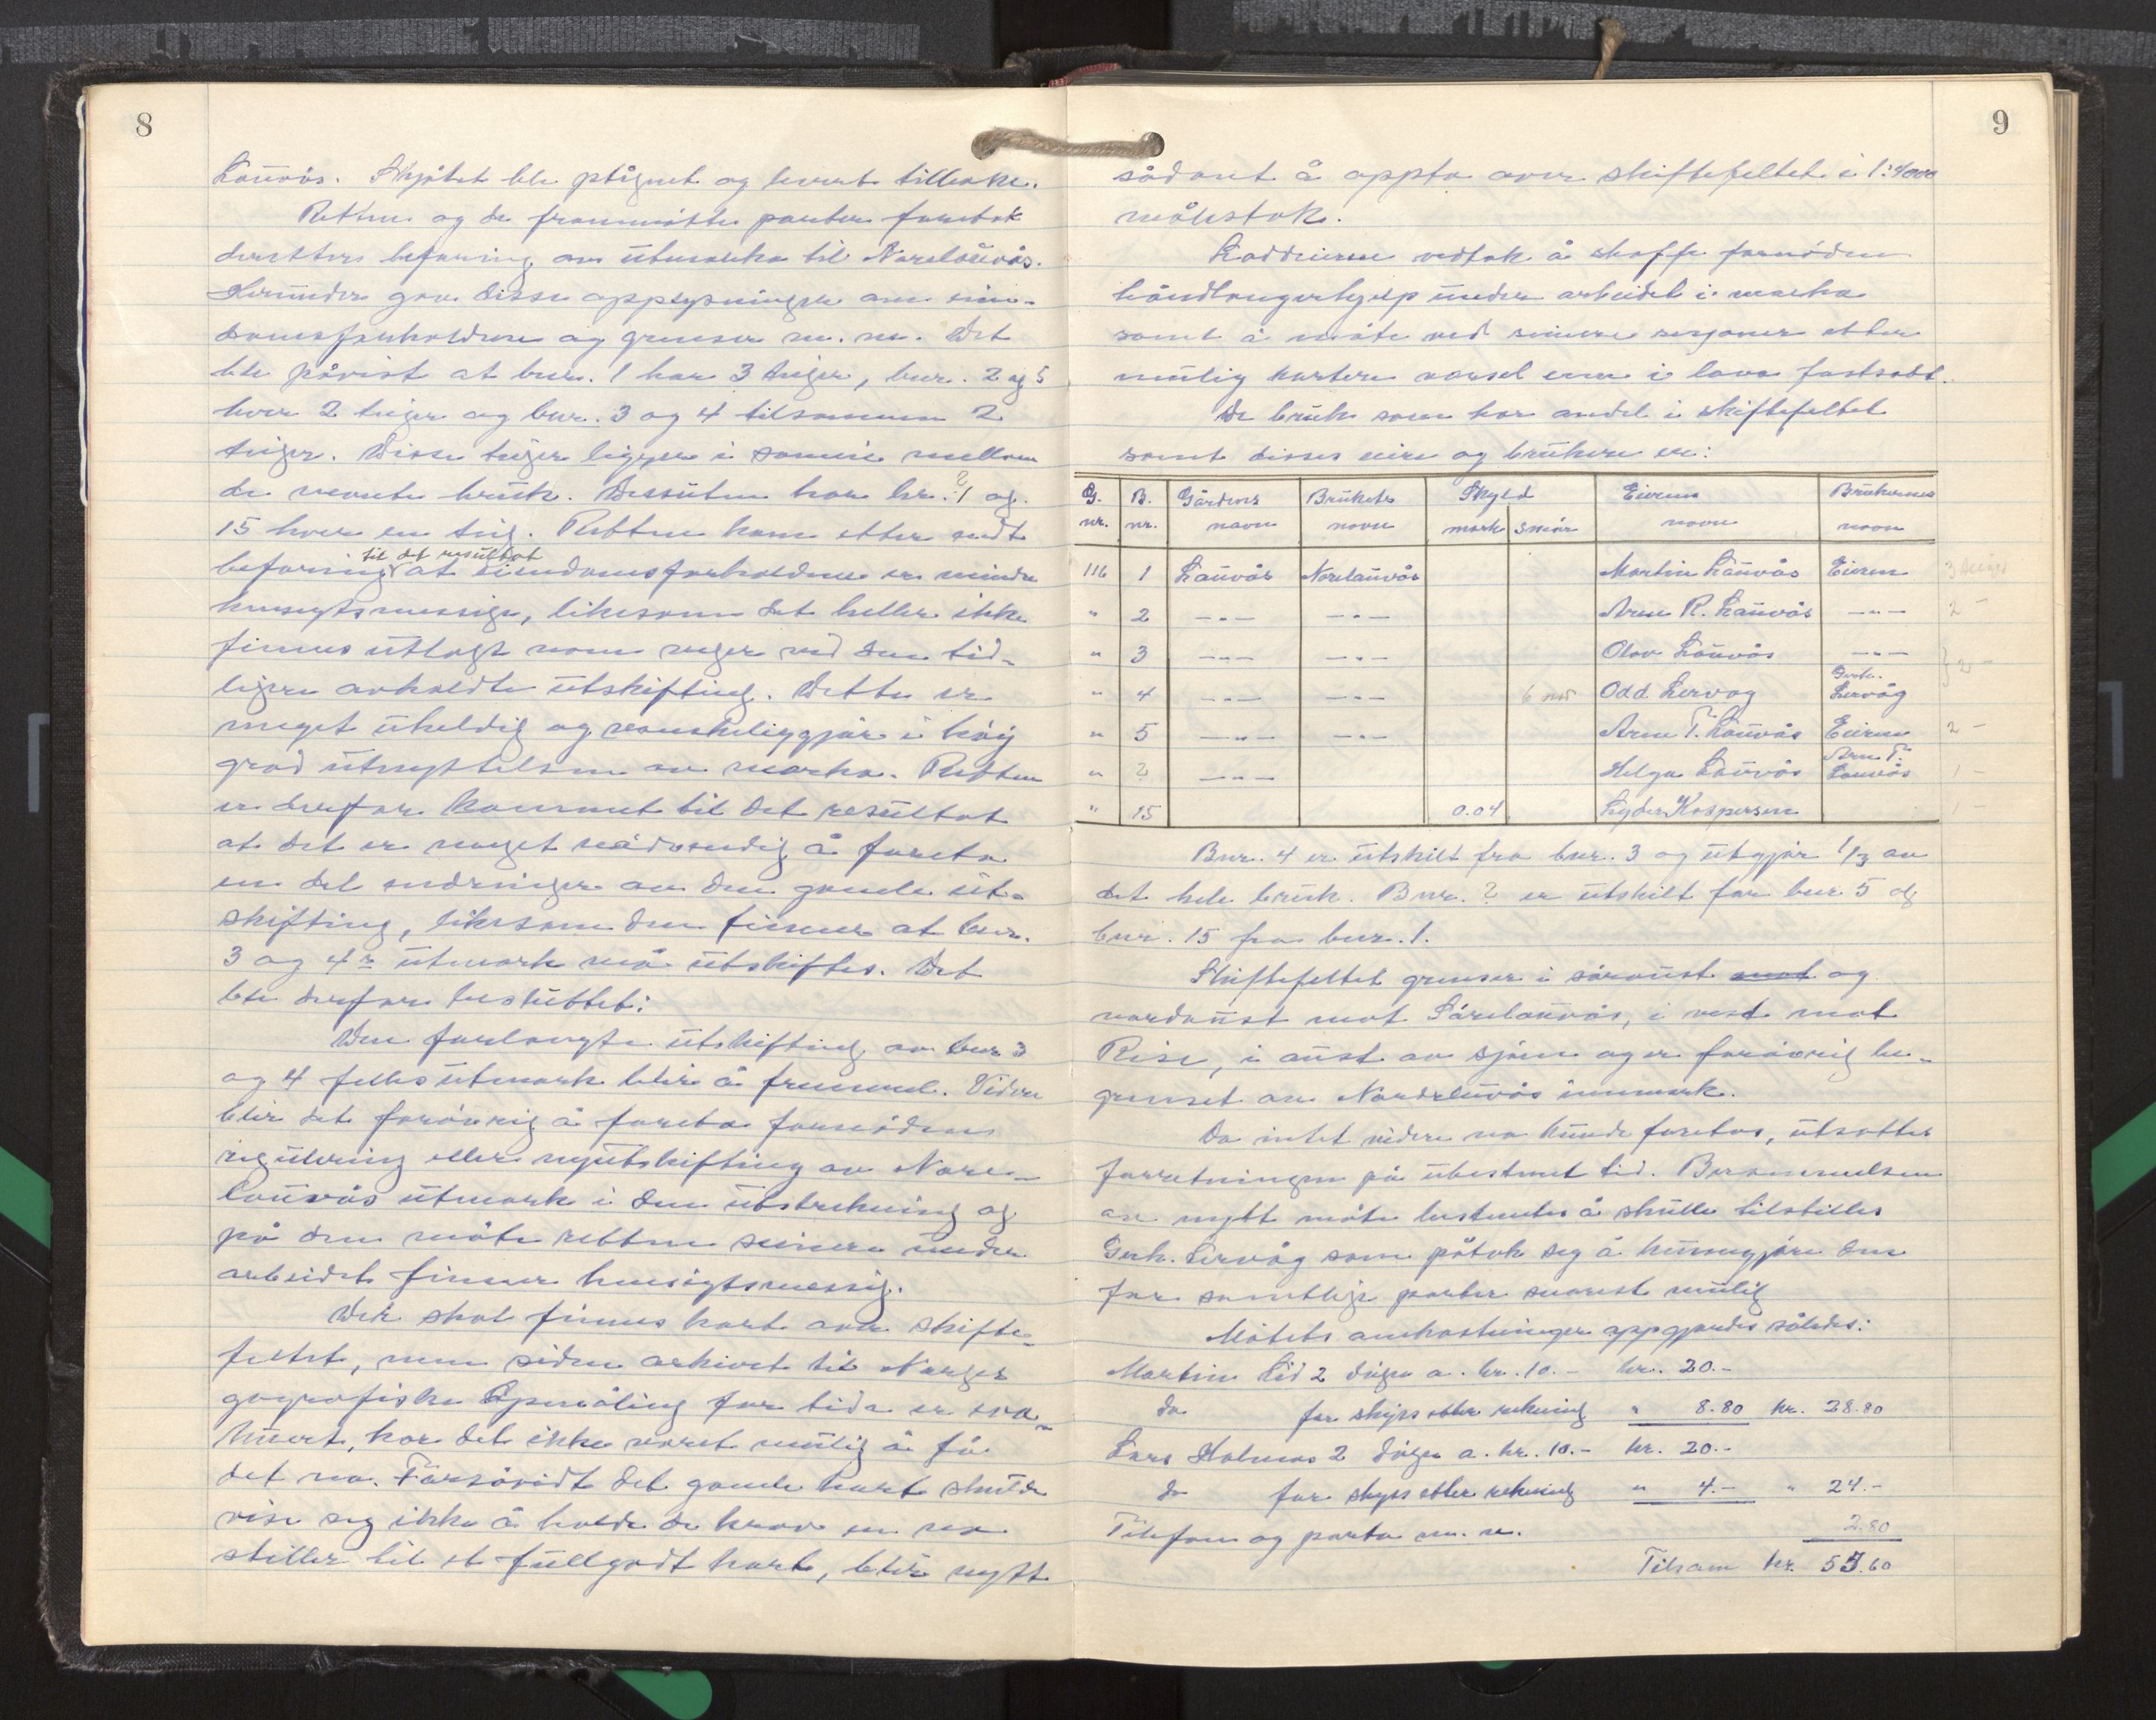 8
Lauvås. Skjøtet ble påtegnet og levert tilbake.
Retten og de frammøtte parter foretok
deretter befaring av utmarka til Norelauvås.
Herunder gav disse opplysninger om eien-
domsforholdene og grenser m. m. Det
ble påvist at bnr. 1 har 3 teiger, bnr. 2 og 5
hver 2 teiger og bnr. 3 og 4 tilsammen 2
teiger. Disse teiger ligger i sameie mellom
de nevnte bruk. Dessuten har br. ? 1 og
15 hver en teig. Retten kom etter endt
befaring til det resultat at eiendomsforholdene er mindre
hensigtsmessige, likesom det heller ikke
finnes utlagt noen veger ved den tid-
ligere avholdte utskifting. Dette er
meget uheldig og vanskeliggjør i høy
grad utnyttelsen av marka. Retten
er derfor kommet til det resultat
at det er meget nødvendig å foreta
en del endringer av den gamle ut-
skifting, likesom den finner at bnr.
3 og 4s utmark må utskiftes. Det
ble derfor besluttet:
Den forlangte utskifting av bnr 3
og 4 felles utmark blir å fremme. Videre
blir det forøvrig å foreta fornøden
regulering eller nyutskifting av Nore-
lauvås utmark i den utstrekning og
på den måte retten seinere under
arbeidet finner hensigtsmessig.
Der skal finnes kart over skifte-
feltet, men siden arkivet til Norges
geografiske Opmåling for tida er eva-
kuert, har det ikke vært mulig å få
det no. Forsåvidt det gamle kart skulde
vise seg ikke å holde de krav en no
stiller til et fullgodt kart, blir nytt
9
sådant å oppta over skiftefeltet i 1:4000
målestok.
Loddeierne vedtok å skaffe fornøden
håndlangerhjelp under arbeidet i marka
samt å møte ved seinere sesjoner etter
mulig kortere varsel enn i lova fastsatt.
De bruk som har andel i skiftefeltet
samt disses eiere og brukere er:
G. nr. B. nr. Gårdens navn Brukets navn Skyld mark smør Eierens navn Brukernes navn
116 1 Lauvås Norelauvås Martin Lauvås Eieren 3 teiger
" 2 -"- -"- Arne R. Lauvås -"- 2 -
" 3 -"- -"- Olav Lauvås -"- } 2 -
" 4 -"- -"- 6 Odd Lervåg Gerh. Lervåg
" 5 -"- -"- Arne T. Lauvås Eieren 2 -
" ? -"- Helga Lauvås Arne T. Lauvås 1 -
" 15 0.04 Lyder Kaspersen 1 -
Bnr. 4 er utskilt fra bnr. 3 og utgjør 1/3 av
det hele bruk. Bnr. ? er utskilt far bnr. 5 og
bnr. 15 fra bnr. 1.
Skiftefeltet grenser i søraust mot og
nordaust mot Sørelauvås, i vest mot
Rise, i aust av sjøen og er forøvrig be-
grenset av Nordelauvås innmark.
Da intet videre no kunde foretas, utsattes
forretningen på ubestemt tid. Berammelsen
av nytt møte bestemtes å skulle tilstilles
Gerh. Lervåg som påtok seg å kunngjøre den
for samtlige parter snarest mulig
Møtets omkostninger oppgjordes således:
Martin Lid 2 dager a. kr. 10.- kr. 20.-
do for skyss etter rekning " 8.80 kr. 28.80
Lars Holmås 2 dager a. kr. 10.- kr. 20.-
do for skyss etter rekning " 4.- " 24.-
Telefon og porto m. m. 2.80
Tilsam kr. 55.60